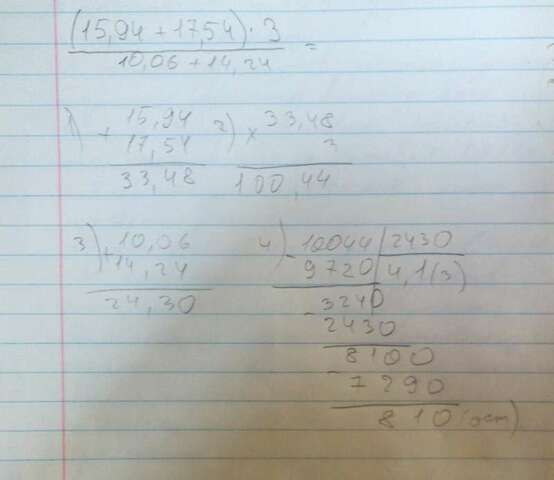 (15,94 + 17,54) · 3
10,06 + 14,24
=
1) + 15,94
17,54
33,48
2) × 33,48
3
100,44
3) + 10,06
14,24
24,30
4) - 10044 | 2430
9720 | 4,1(3)
- 3240
2430
8100
- 7290
810 (ост)